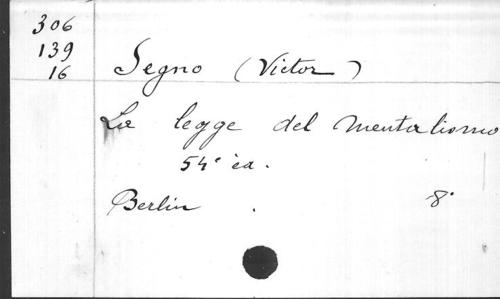 306
139
16
Segno (Victor)
La legge del mentalismo
54ª ed.
Berlin . 8°